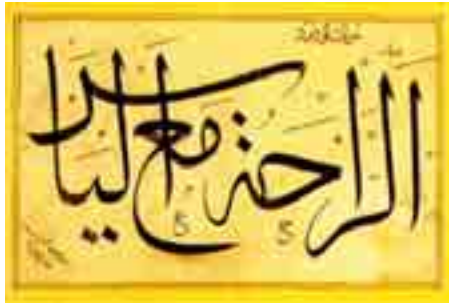 الراحة مع الياس